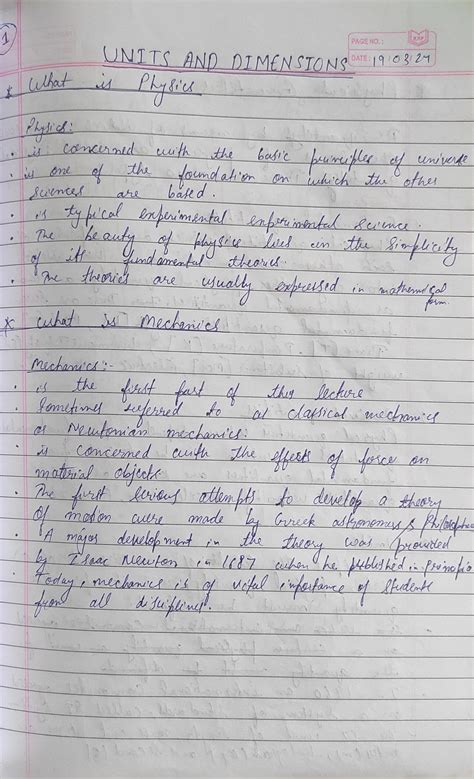 1
PAGE NO.:
DATE: 19/03/24
UNITS AND DIMENSIONS
* What is Physics
Physics:
• is concerned with the basic principles of universe
• is one of the foundation on which the other
sciences are based.
• is typical experimental experimental science.
• The beauty of physics lies in the simplicity
of its fundamental theories.
• The theories are usually expressed in mathematical
form.
* What is Mechanics
Mechanics:-
• is the first part of this lecture
• Sometimes referred to as classical mechanics
or Newtonian mechanics.
• is concerned with the effects of force on
material objects.
• The first serious attempts to develop a theory
of motion were made by Greek astronomers &
• A major development in the theory was provided
by Isaac Newton in 1687 when he published in Principia
• Today, mechanics is of vital importance of students
from all disciplines.